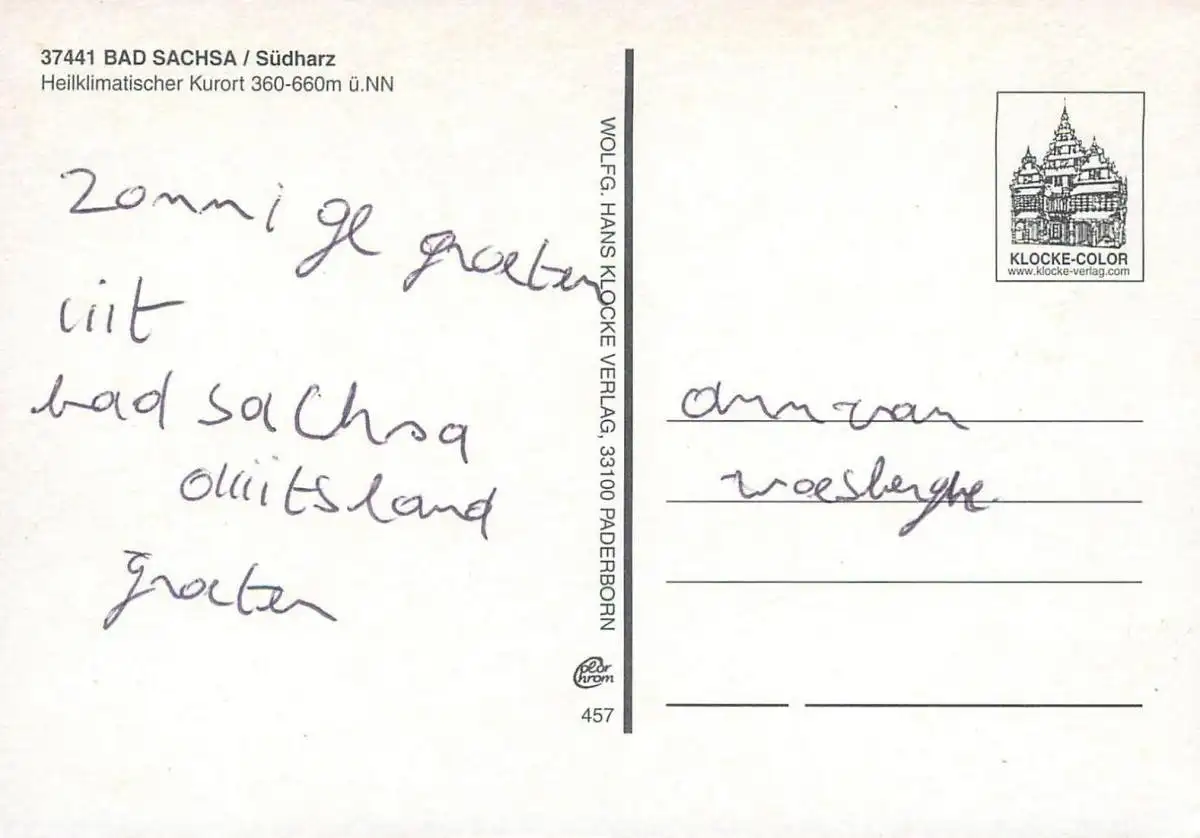 37441 BAD SACHSA / Südharz
Heilklimatischer Kurort 360-660m ü.NN
Zonnige groeten
uit
bad sachsa
duitsland
groeten
WOLFG. HANS KLOCKE VERLAG, 33100 PADERBORN
Color
Chrom
457
KLOCKE-COLOR
www.klocke-verlag.com
ann van